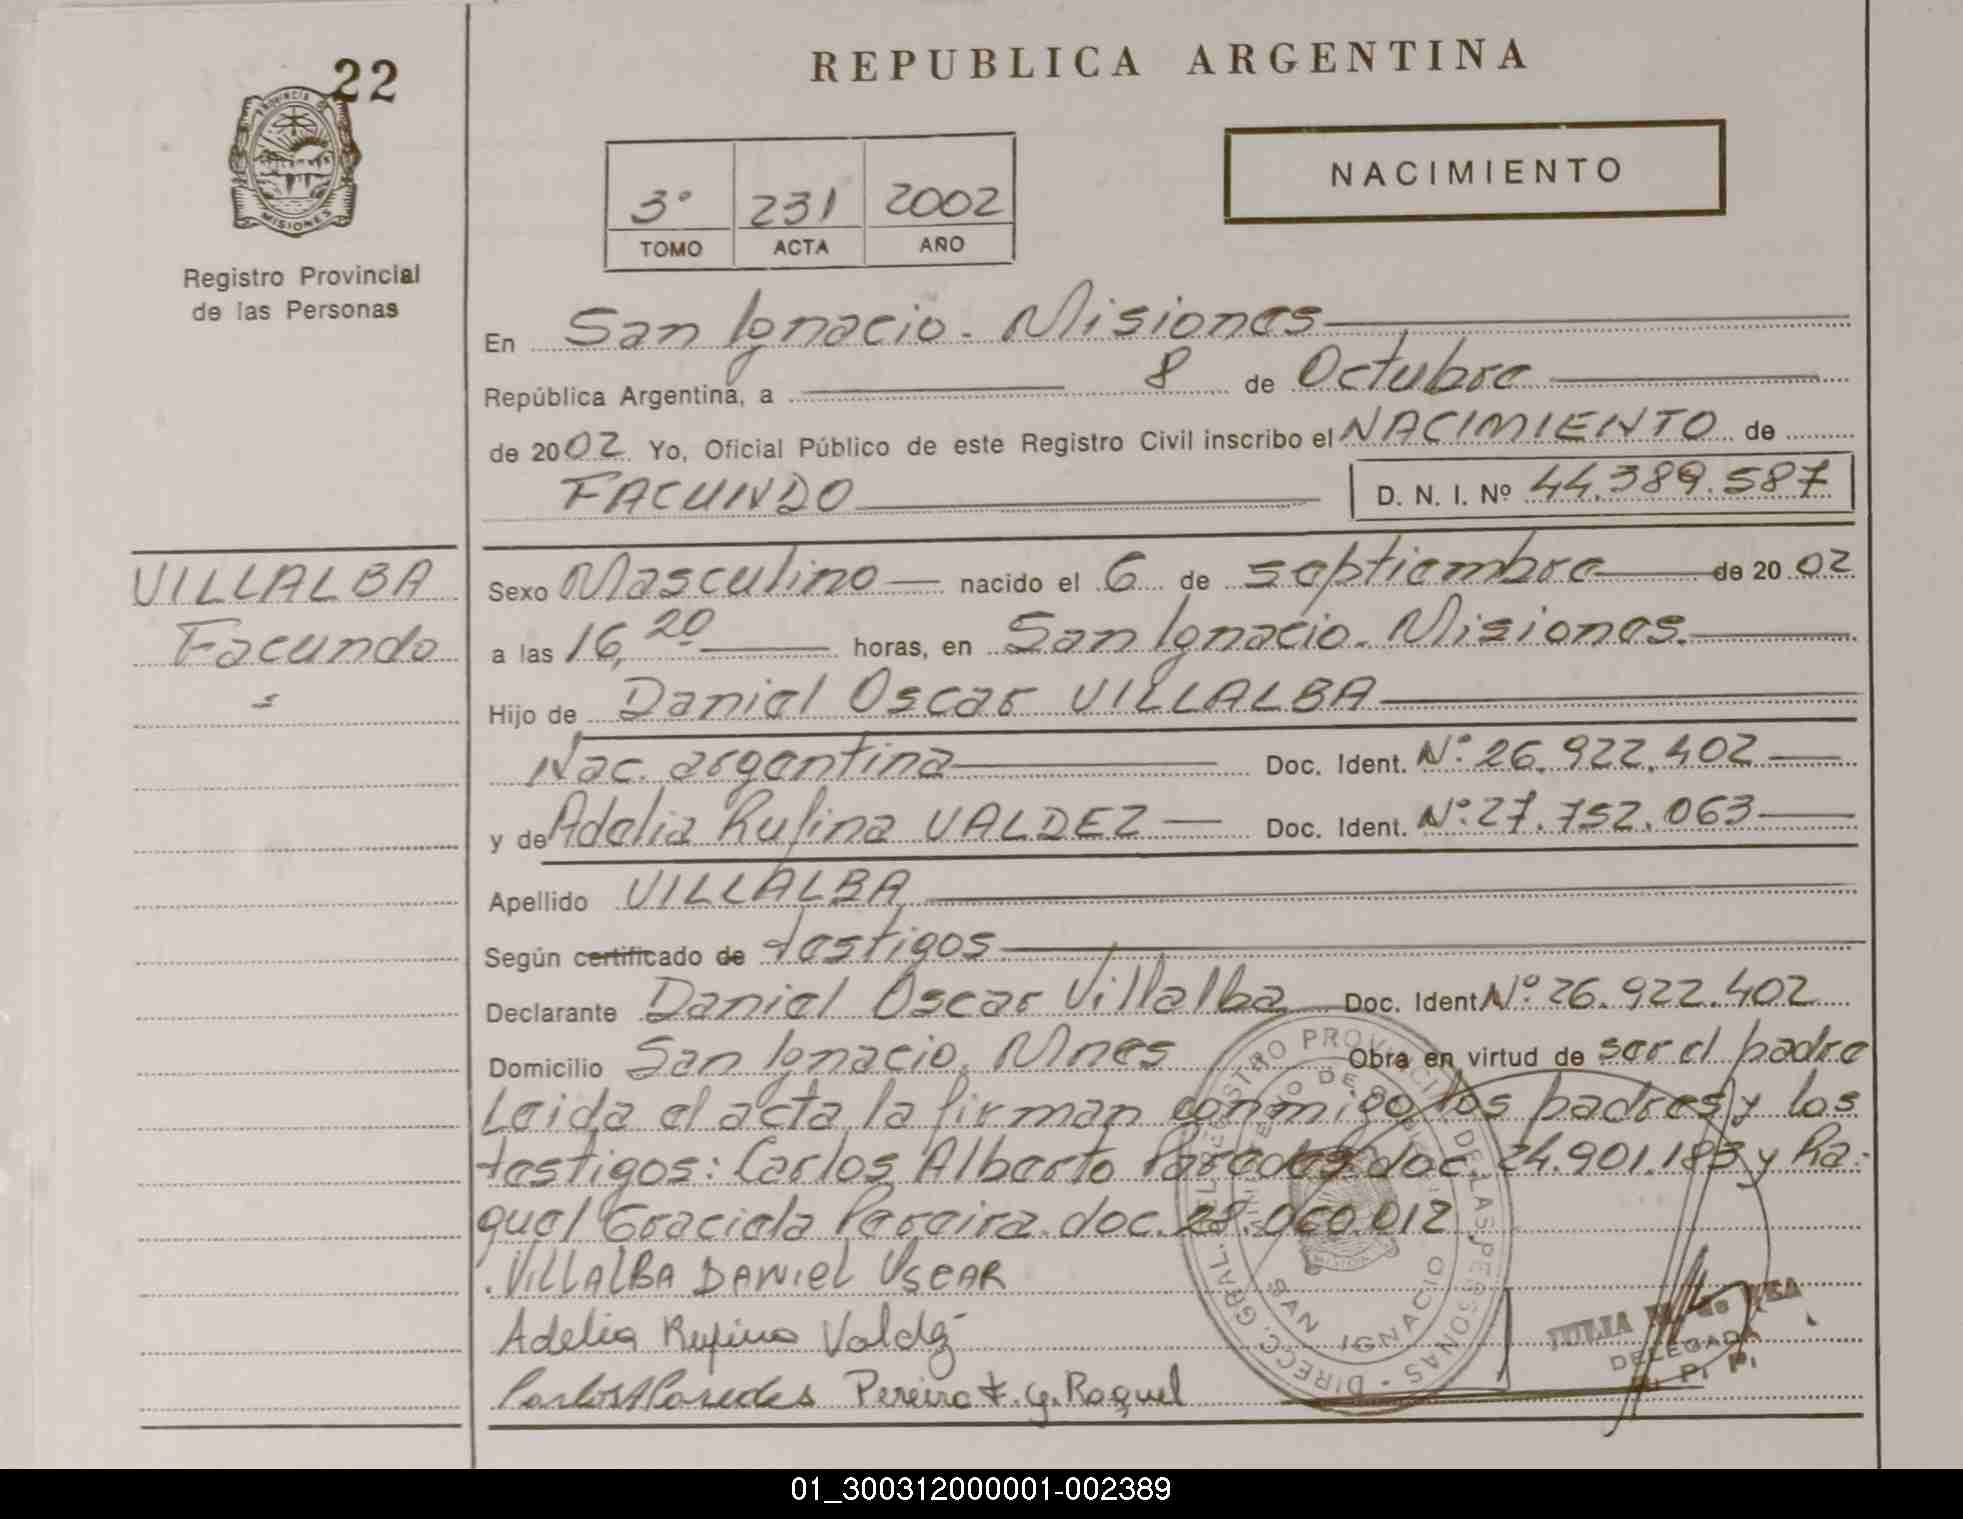 22
REPUBLICA ARGENTINA
PROVINCIA DE
MISIONES
Registro Provincial
de las Personas
3° 231 2002
TOMO ACTA AÑO
NACIMIENTO
En San Ignacio. Misiones
República Argentina, a 8 de Octubre
de 2002 Yo, Oficial Público de este Registro Civil inscribo el NACIMIENTO de
FACUNDO D. N. I. Nº 44.389.587
VILLALBA
Facundo
Sexo Masculino nacido el 6 de septiembre de 2002
a las 16,20 horas, en San Ignacio. Misiones.
Hijo de Daniel Oscar VILLALBA
Nac. argentina Doc. Ident. N° 26.922.402
y de Adelia Rufina VALDEZ Doc. Ident. N° 27.752.063
Apellido VILLALBA
Según certificado de testigos
Declarante Daniel Oscar Villalba Doc. Ident N° 26.922.402
Domicilio San Ignacio. Mnes Obra en virtud de ser el padre
Leida el acta la firman conmigo los padres y los
testigos: Carlos Alberto Paredes doc. 24.901.183 y Ra-
quel Graciela Pereira. doc. 28.060.012
VillALBA DANiel OSCAR
Adelia Rufina Valdez
Carlos A Paredes Pereira F. G. Raquel
DIRECC. GRAL. DEL REGISTRO PROVINCIAL DE LAS PERSONAS
MINISTERIO DE
SAN IGNACIO
JULIA
DELEGADA
01_300312000001-002389